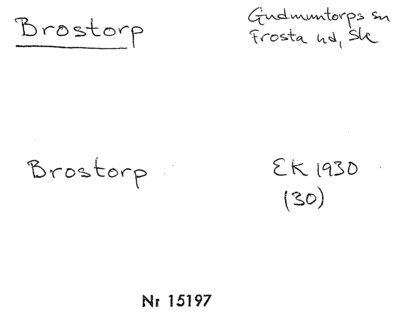 Brostorp
Gudmuntorps sn
Frosta hd, Sk
Brostorp
EK 1930
(30)
Nr 15197